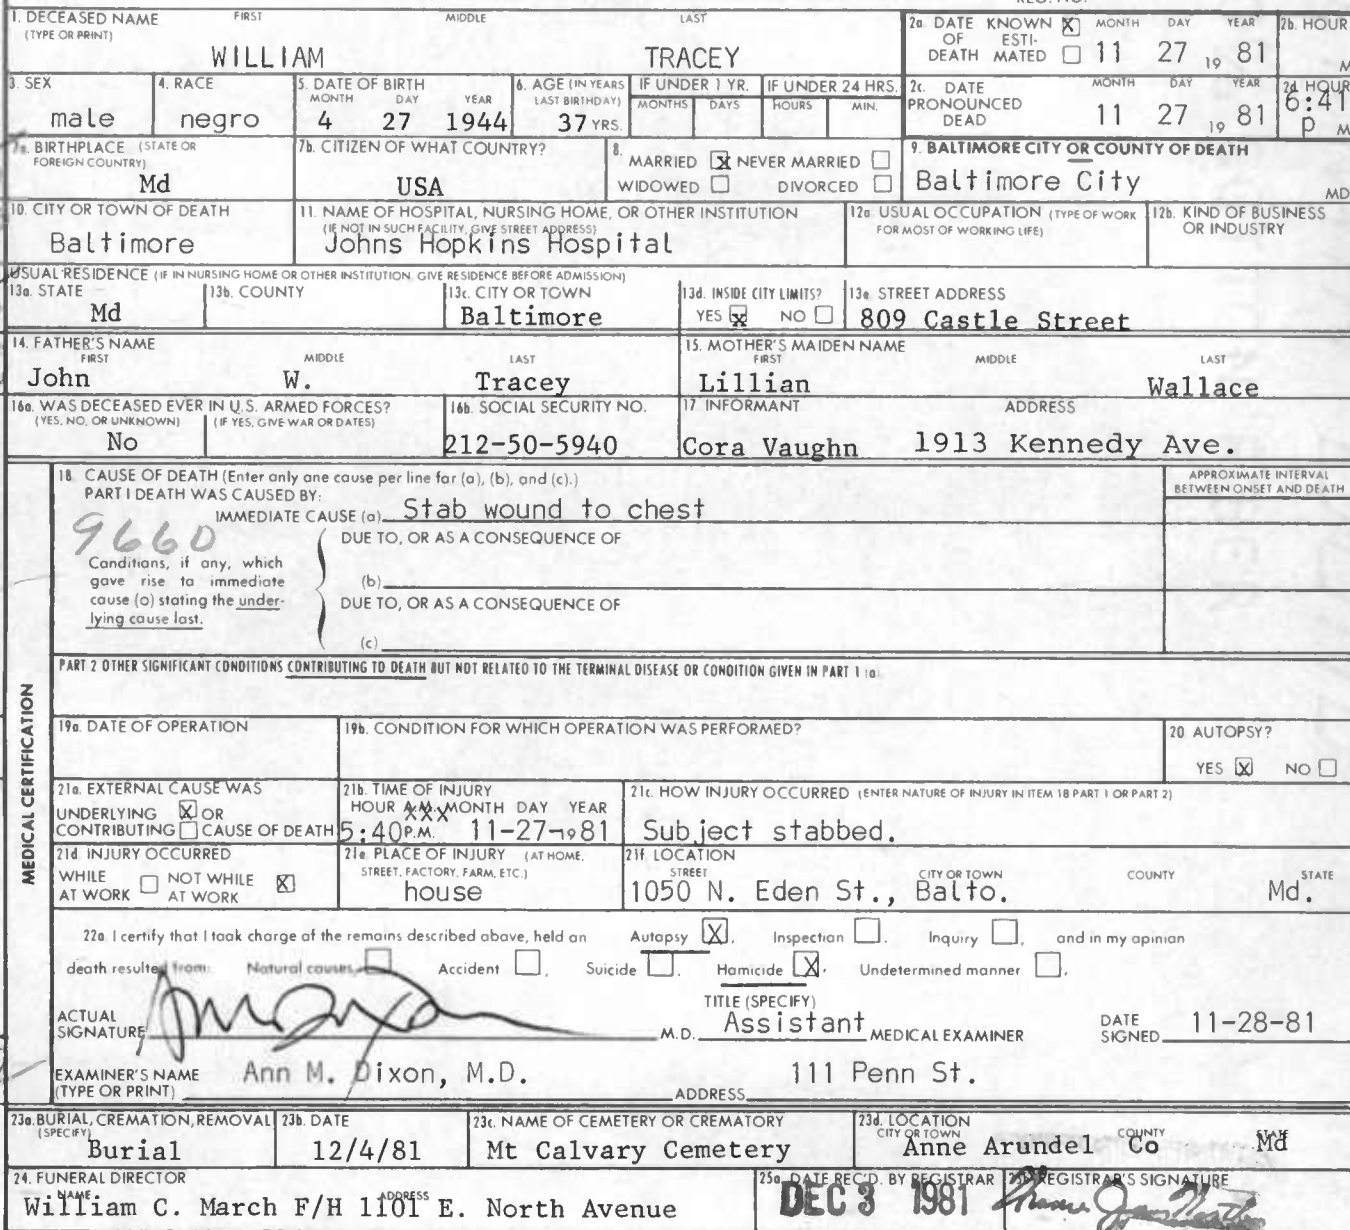 1. DECEASED NAME FIRST MIDDLE LAST
(TYPE OR PRINT)
WILLIAM TRACEY
2a. DATE KNOWN X MONTH DAY YEAR
OF ESTI-
DEATH MATED 11 27 19 81
2b. HOUR
M
3. SEX
male
4. RACE
negro
5. DATE OF BIRTH
MONTH DAY YEAR
4 27 1944
6. AGE (IN YEARS
LAST BIRTHDAY)
37 YRS.
IF UNDER 1 YR.
MONTHS DAYS
IF UNDER 24 HRS.
HOURS MIN.
2c. DATE MONTH DAY YEAR
PRONOUNCED
DEAD 11 27 19 81
2d HOUR
6:41
p M
7a. BIRTHPLACE (STATE OR
FOREIGN COUNTRY)
Md
7b. CITIZEN OF WHAT COUNTRY?
USA
8.
MARRIED X NEVER MARRIED
WIDOWED DIVORCED
9. BALTIMORE CITY OR COUNTY OF DEATH
Baltimore City
MD
10. CITY OR TOWN OF DEATH
Baltimore
11. NAME OF HOSPITAL, NURSING HOME, OR OTHER INSTITUTION
(IF NOT IN SUCH FACILITY, GIVE STREET ADDRESS)
Johns Hopkins Hospital
12a USUAL OCCUPATION (TYPE OF WORK
FOR MOST OF WORKING LIFE)
12b. KIND OF BUSINESS
OR INDUSTRY
USUAL RESIDENCE (IF IN NURSING HOME OR OTHER INSTITUTION, GIVE RESIDENCE BEFORE ADMISSION)
13a. STATE
Md
13b. COUNTY
13c. CITY OR TOWN
Baltimore
13d. INSIDE CITY LIMITS?
YES X NO
13e STREET ADDRESS
809 Castle Street
14. FATHER'S NAME
FIRST MIDDLE LAST
John W. Tracey
15. MOTHER'S MAIDEN NAME
FIRST MIDDLE LAST
Lillian Wallace
16a. WAS DECEASED EVER IN U.S. ARMED FORCES?
(YES, NO, OR UNKNOWN) (IF YES, GIVE WAR OR DATES)
No
16b. SOCIAL SECURITY NO.
212-50-5940
17 INFORMANT ADDRESS
Cora Vaughn 1913 Kennedy Ave.
MEDICAL CERTIFICATION
18 CAUSE OF DEATH (Enter only one cause per line for (a), (b), and (c).)
PART I DEATH WAS CAUSED BY:
IMMEDIATE CAUSE (a) Stab wound to chest
APPROXIMATE INTERVAL
BETWEEN ONSET AND DEATH
9660
DUE TO, OR AS A CONSEQUENCE OF
Conditions, if any, which
gave rise to immediate
cause (a) stating the under-
lying cause last.
(b)
DUE TO, OR AS A CONSEQUENCE OF
(c)
PART 2 OTHER SIGNIFICANT CONDITIONS CONTRIBUTING TO DEATH BUT NOT RELATED TO THE TERMINAL DISEASE OR CONDITION GIVEN IN PART 1 (a)
19a. DATE OF OPERATION
19b. CONDITION FOR WHICH OPERATION WAS PERFORMED?
20 AUTOPSY?
YES X NO
21a. EXTERNAL CAUSE WAS
UNDERLYING X OR
CONTRIBUTING CAUSE OF DEATH
21b. TIME OF INJURY
HOUR A.M. MONTH DAY YEAR
XXX
5:40 P.M. 11-27-19 81
21c. HOW INJURY OCCURRED (ENTER NATURE OF INJURY IN ITEM 18 PART 1 OR PART 2)
Subject stabbed.
21d INJURY OCCURRED
WHILE NOT WHILE X
AT WORK AT WORK
21e. PLACE OF INJURY (AT HOME,
STREET, FACTORY, FARM, ETC.)
house
21f. LOCATION
STREET CITY OR TOWN COUNTY STATE
1050 N. Eden St., Balto. Md.
22a I certify that I took charge of the remains described above, held an Autopsy X, Inspection , Inquiry , and in my opinion
death resulted from: Natural causes Accident , Suicide , Homicide X, Undetermined manner .
ACTUAL
SIGNATURE
M.D.
TITLE (SPECIFY)
Assistant MEDICAL EXAMINER
DATE
SIGNED 11-28-81
EXAMINER'S NAME
(TYPE OR PRINT) Ann M. Dixon, M.D.
ADDRESS 111 Penn St.
23a. BURIAL, CREMATION, REMOVAL
(SPECIFY)
Burial
23b. DATE
12/4/81
23c. NAME OF CEMETERY OR CREMATORY
Mt Calvary Cemetery
23d. LOCATION
CITY OR TOWN COUNTY
Anne Arundel Co Md
24. FUNERAL DIRECTOR
NAME ADDRESS
William C. March F/H 1101 E. North Avenue
25a. DATE REC'D. BY REGISTRAR
DEC 3 1981
25b REGISTRAR'S SIGNATURE